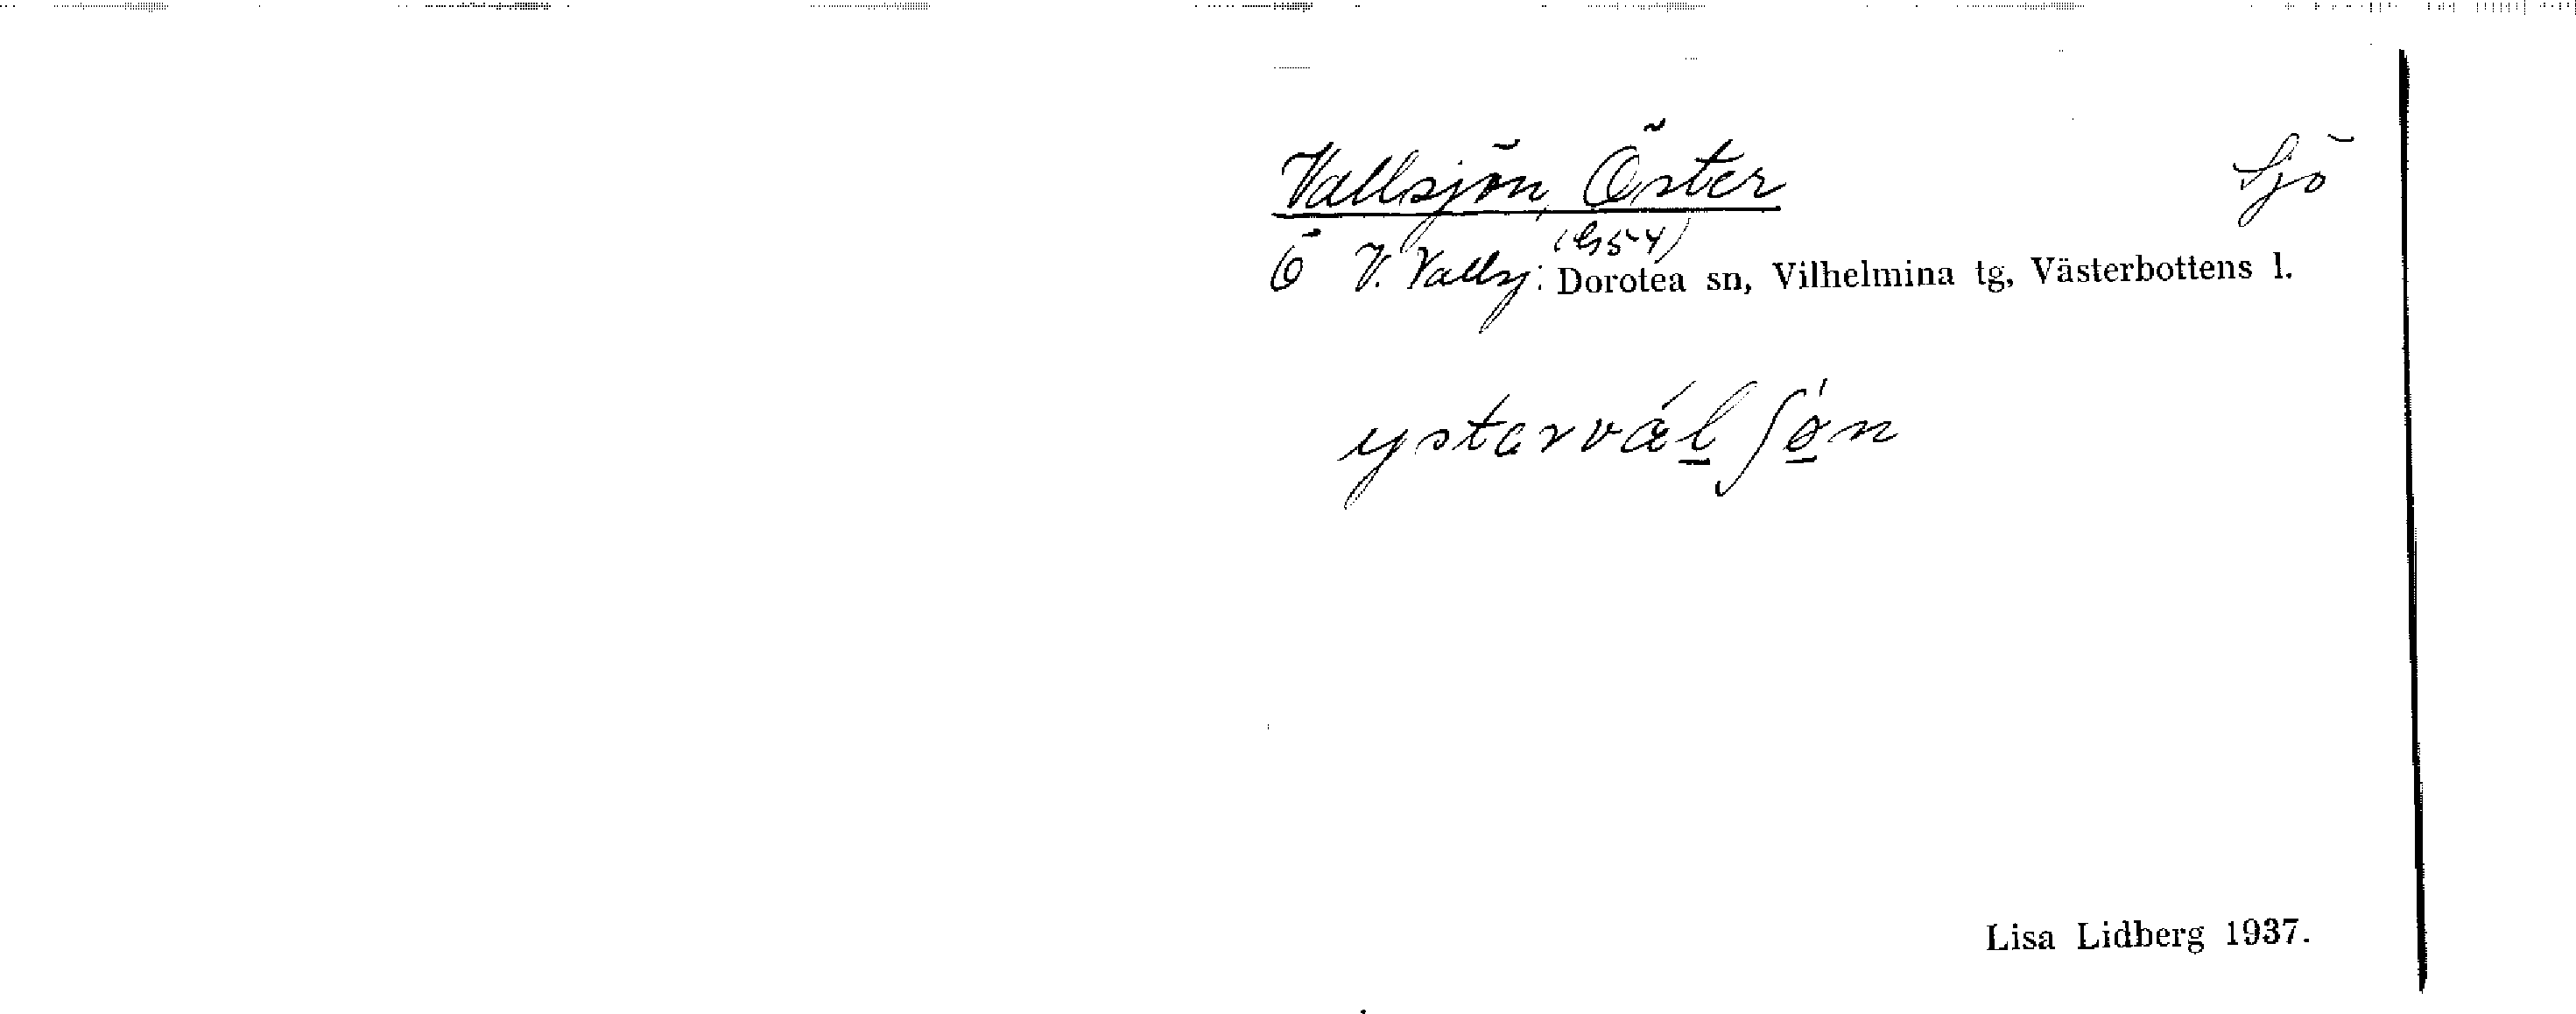 Vallsjön, Öster Sjö
Ö V. Vallsj: Dorotea sn, Vilhelmina tg, Västerbottens l.
ystarvál̲ʃǿ̲n
Lisa Lidberg 1937.